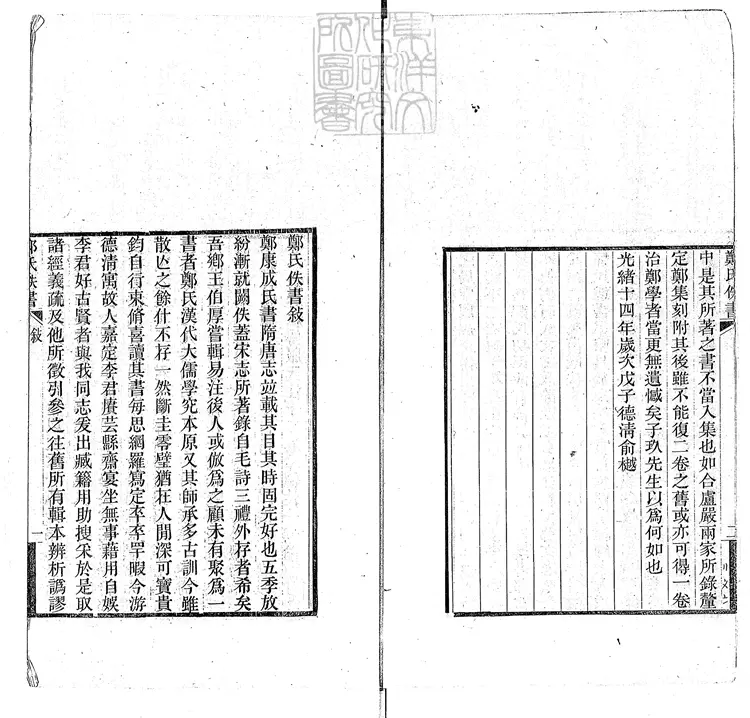 鄭氏佚書
中是其所著之書不當入集也如合盧嚴兩家所錄釐
定鄭集刻附其後雖不能復二卷之舊或亦可得一卷
治鄭學者當更無遺憾矣子玖先生以爲何如也
光緒十四年歲次戊子德清俞樾
二
東洋文
化研究
所圖書
鄭氏佚書敍
鄭康成氏書隋唐志竝載其目其時固完好也五季放
紛漸就闕佚蓋宋志所著錄自毛詩三禮外存者希矣
吾鄉王伯厚嘗輯易注後人或倣爲之顧未有聚爲一
書者鄭氏漢代大儒學究本原又其師承多古訓今雖
散亾之餘什不存一然斷圭零璧猶在人閒深可寶貴
鈞自行束脩喜讀其書每思網羅寫定卒卒罕暇今游
德清寓故人嘉定李君賡芸縣齋宴坐無事藉用自娛
李君好古賢者與我同志爰出臧籍用助搜采於是取
諸經義疏及他所徵引參之往舊所有輯本辨析譌謬
鄭氏佚書
敍
一